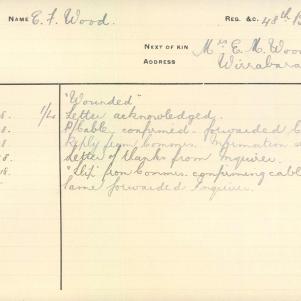 NAME E. F. Wood. REG. &C. 48th B
NEXT OF KIN Mrs E. M. Wood
ADDRESS Wirrabara
"Wounded"
8. 1/4 Letter acknowledged.
8. P/Cable, confirmed. forwarded
8. Reply from Commrs. Information
8. Letter of thanks from Inquirer.
18. "Slip" from Commrs. confirming cable
Same forwarded Inquirer.